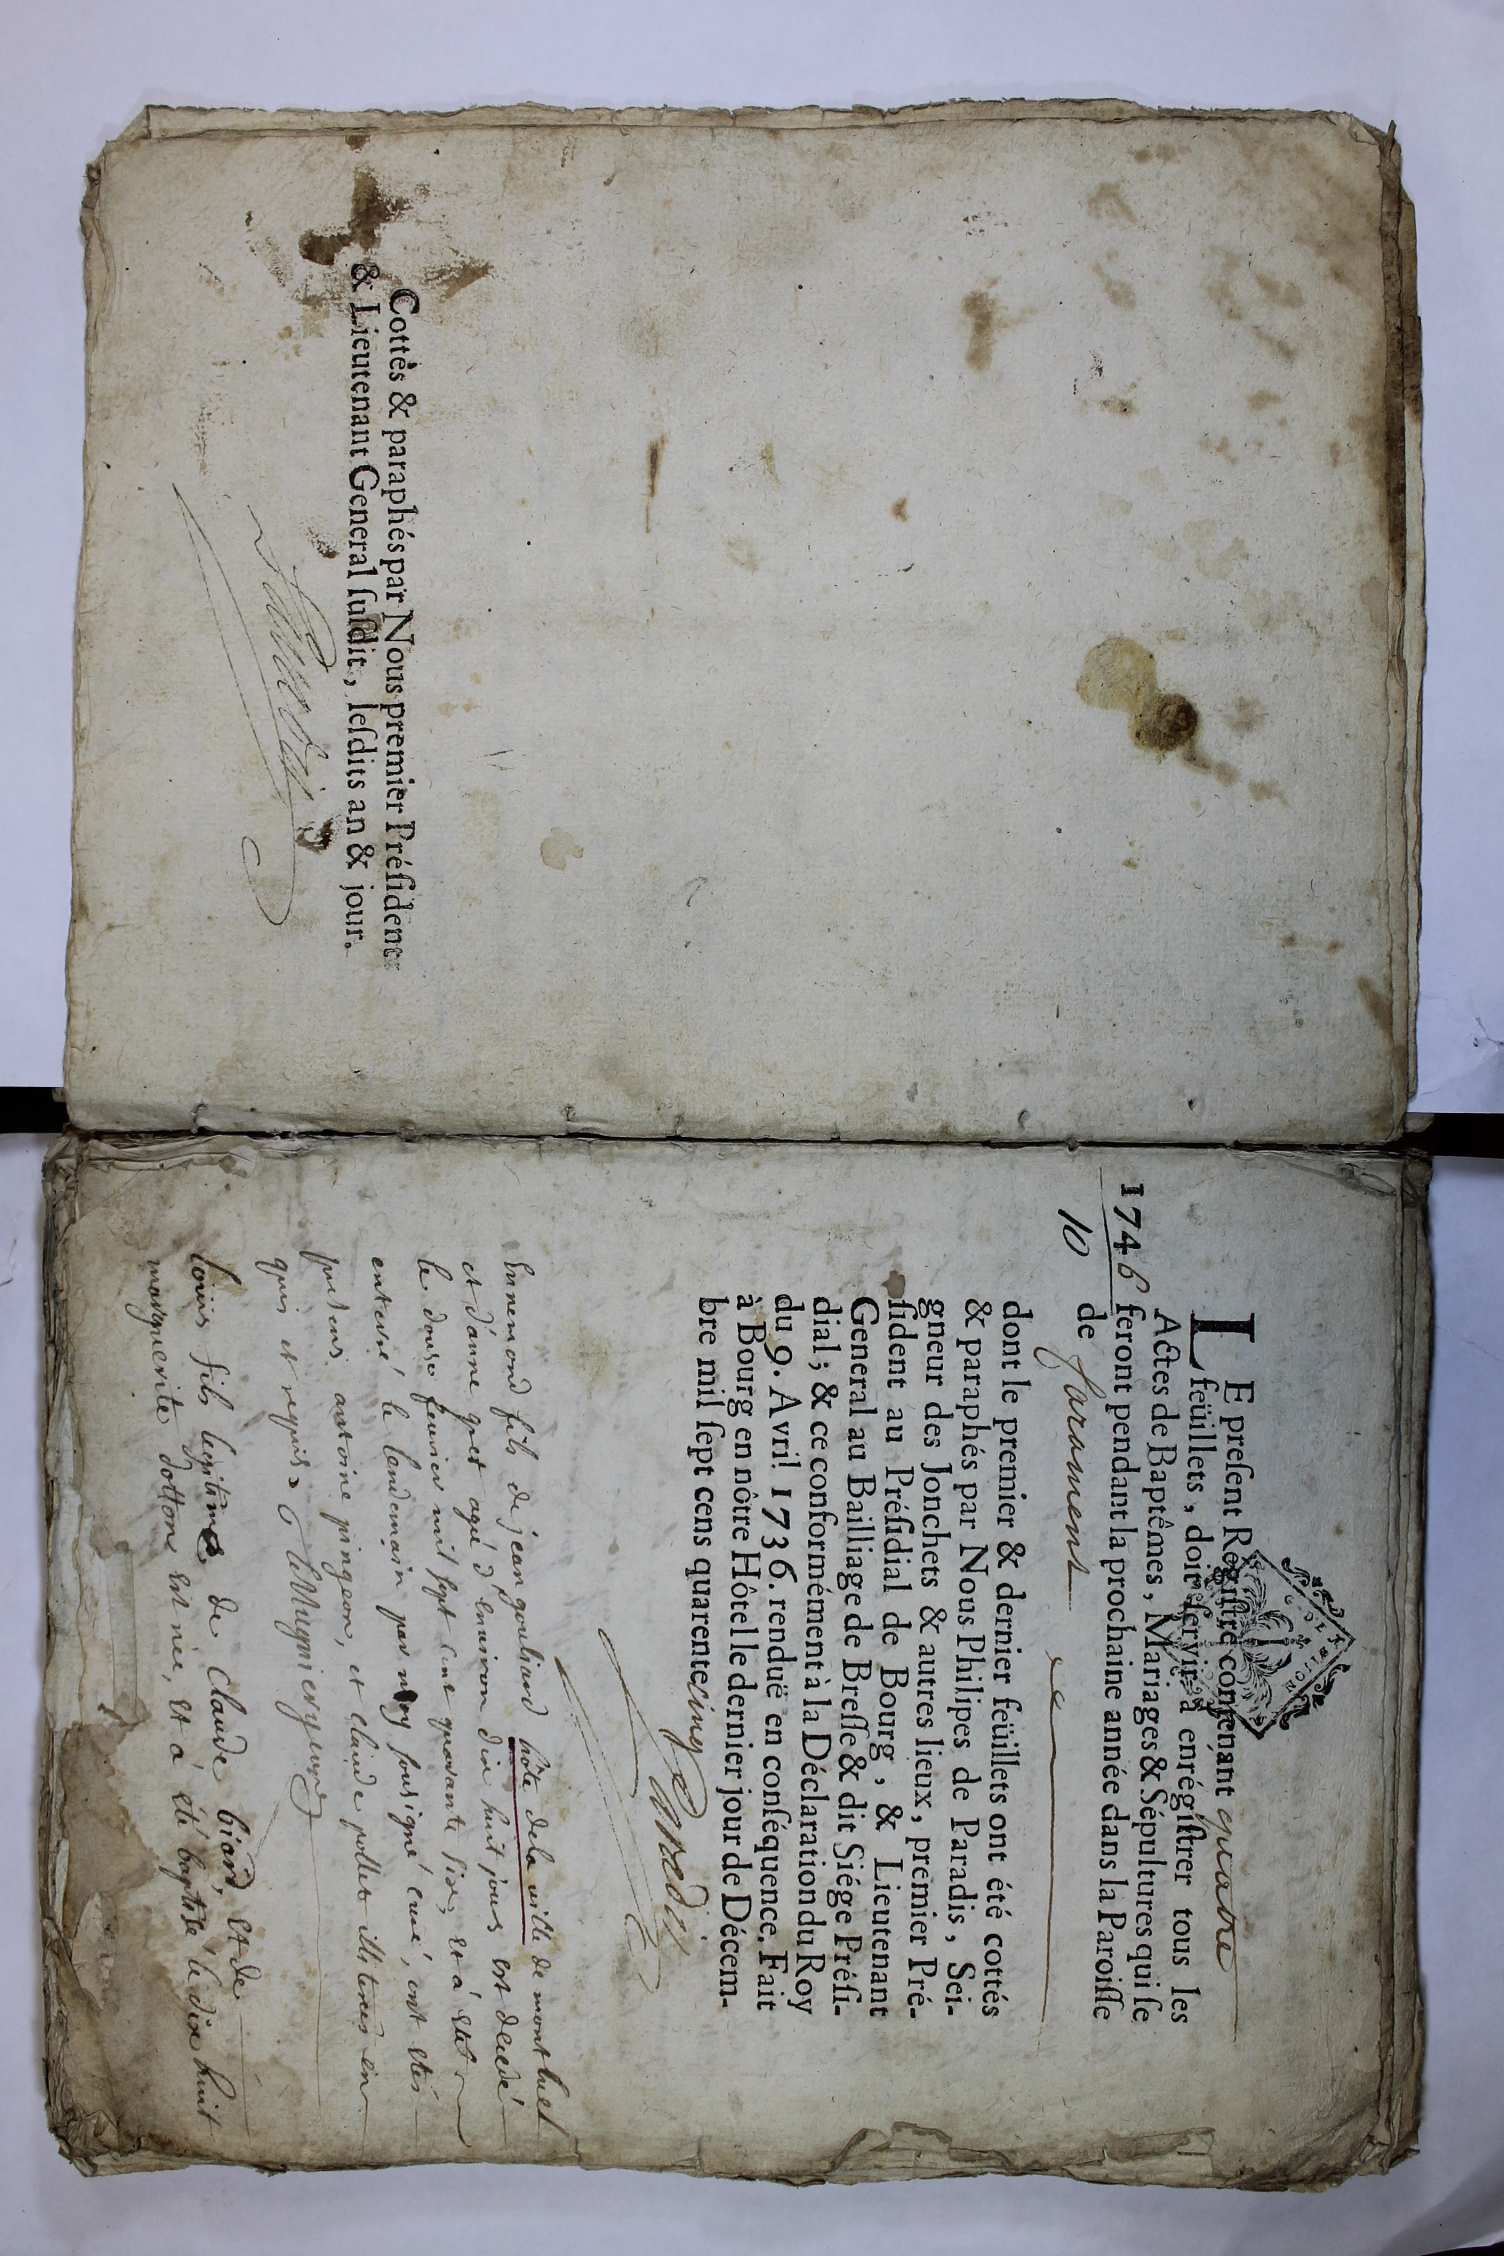 Cottès & paraphés par Nous premier Présiden
& Lieutenant General ſuſdit, leſdits an & jour.
1746
10
LE preſent Regiſtre contenant quatre
feüillets, doit ſervir à enrégiſtrer tous les
Actes de Baptêmes, Mariages & Sépultures qui ſe
feront pendant la prochaine année dans la Paroiſſe
de faramens
dont le premier & dernier feüillets ont été cottés
& paraphés par Nous Philipes de Paradis, Sei-
gneur des Jonchets & autres lieux, premier Pré-
ſident au Préſidial de Bourg, & Lieutenant
General au Bailliage de Breſſe & dit Siége Préſi-
dial; & ce conformément à la Déclaration du Roy
du 9. Avril 1736. renduë en conſéquence. Fait
à Bourg en nôtre Hôtel le dernier jour de Décem-
bre mil ſept cens quarente cinq
Paradis
Ennemond fils de jean gouliard hôte de la ville de montluel
et d'anne gret agé d'environ dix huit jours est decedé
le douse fevrier mil sept cent quarante six, et a été
enterré le lendemain par moy sousigné curé, ont etés
presens antoine pingeon, et claude pollet illiterés en
quis et requis
Louis fils legitime de Claude biard, et de
marguerite dottone est né, et a été baptisé le dix huit